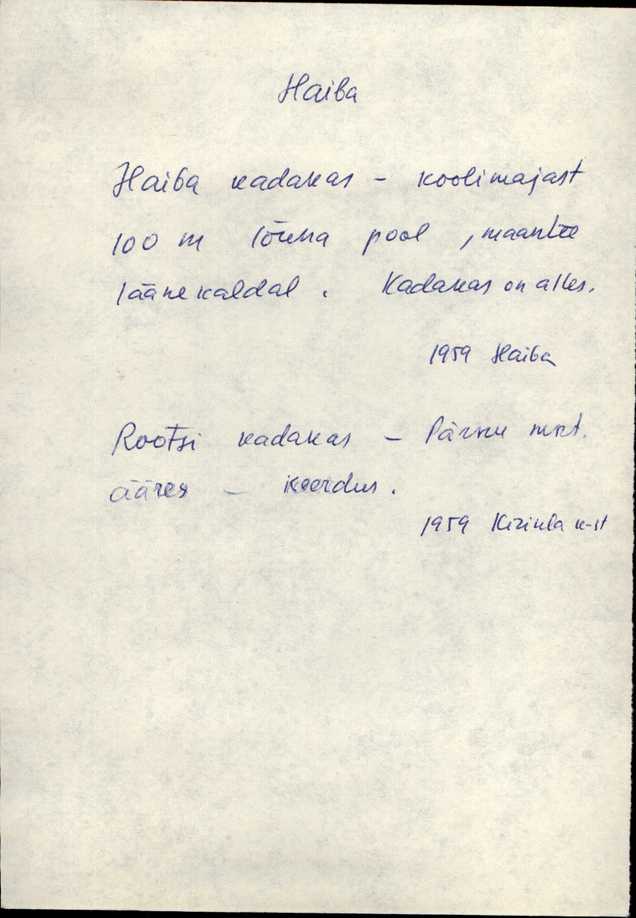 Haiba
Haiba kadakas - koolimajast
100 m lõuna pool, maantee
läänekaldal. Kadakas on alles.
1959 Haiba
Rootsi kadakas - Pärnu mnt.
ääres - keerdus.
1959 k-st